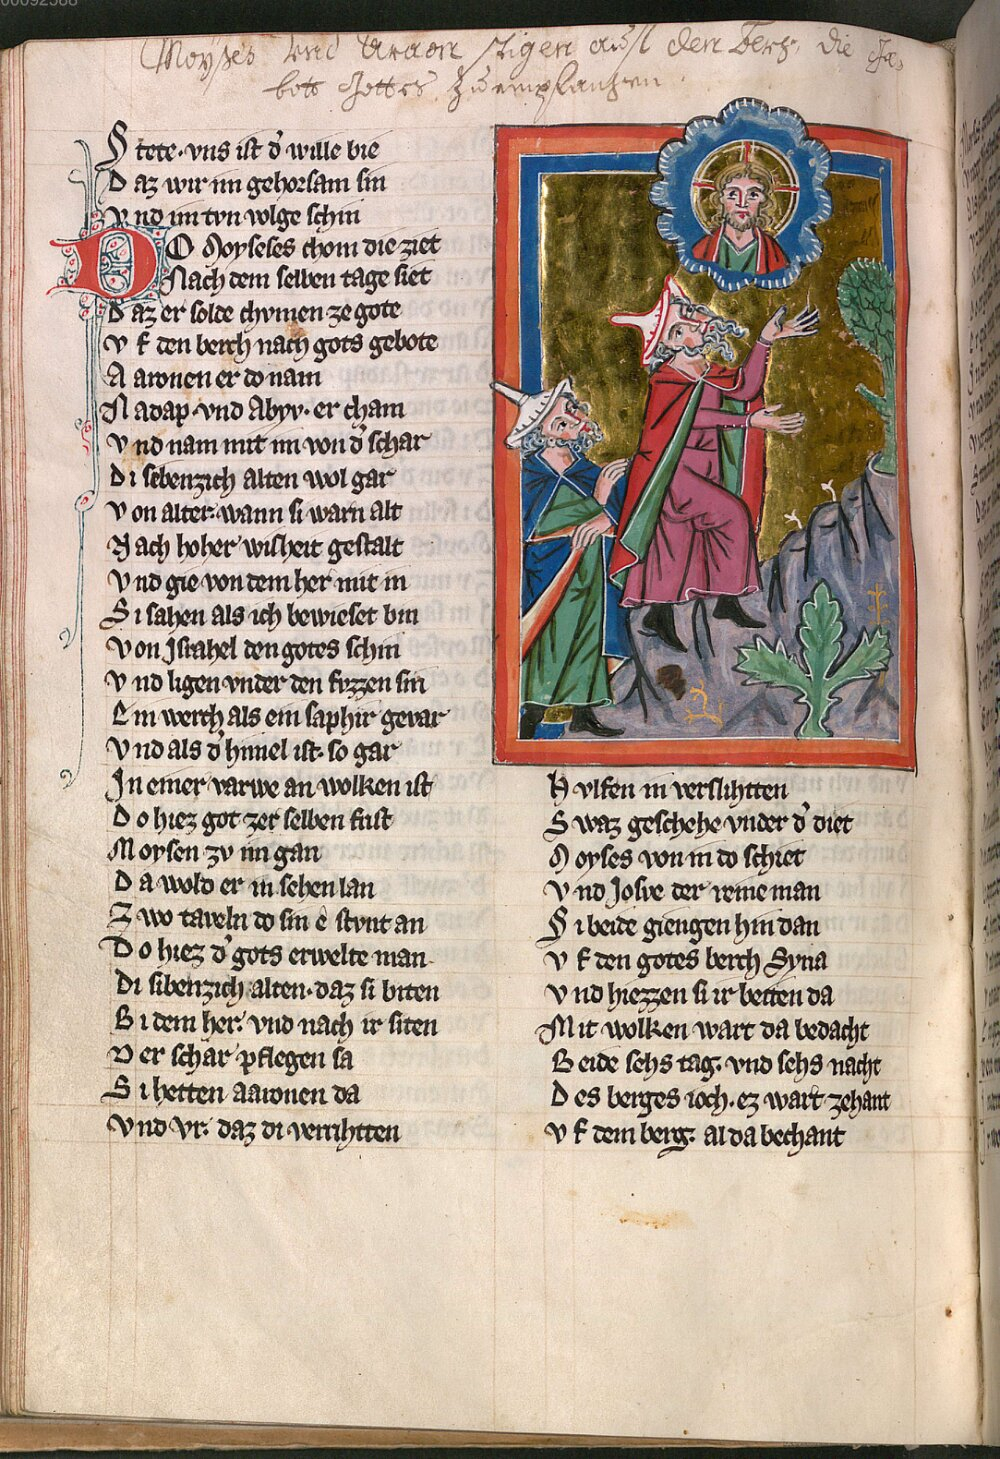 00092588
Moÿses vnd Araon stigen auf den Berg, die Ge,
bott Gottes Zu empfanhen
S tete · vns ist d' wille bie
D az wir im gehorsam sin
V nd im tvn volge schin
DO Moyseses chom die ziet
Nach dem selben tage siet
D az er solde chvmen ze gote
V f den berch nach gots gebote
A aronen er do nam
N adap · vnd Abyv · er cham
V nd nam mit im von d' schar
D i sibenzich alten wol gar
V on alter · wann si warn alt
N ach hoher wisheit gestalt
V nd gie von dem her mit in
S i sahen als ich bewiset bin
V on Israhel den gotes schin
V nd ligen vnder den fvzzen sin
E in werch als ein saphir gevar
V nd als d' himel ist · so gar
I n einer varwe an wolken ist
D o hiez got zer selben frist
M oysen zv im gan
D a wold er in sehen lan
Z wo taveln do sin e stvnt an
D o hiez d' gots erwelte man
D i sibenzich alten · daz si biten
B i dem her · vnd nach ir siten
D er schar pflegen sa
S i hetten aaronen da
V nd vr · daz di verrihtten
H vlfen in verslihtten
S waz geschehe vnder d' diet
M oyses von in do schiet
V nd Josve der reine man
S i beide giengen hin dan
V f den gotes berch Syna
V nd hiezzen si ir beiten da
M it wolken wart da bedacht
B eide sehs tag · vnd sehs nacht
D es berges ioch · ez wart zehant
V f dem berg · al da bechant